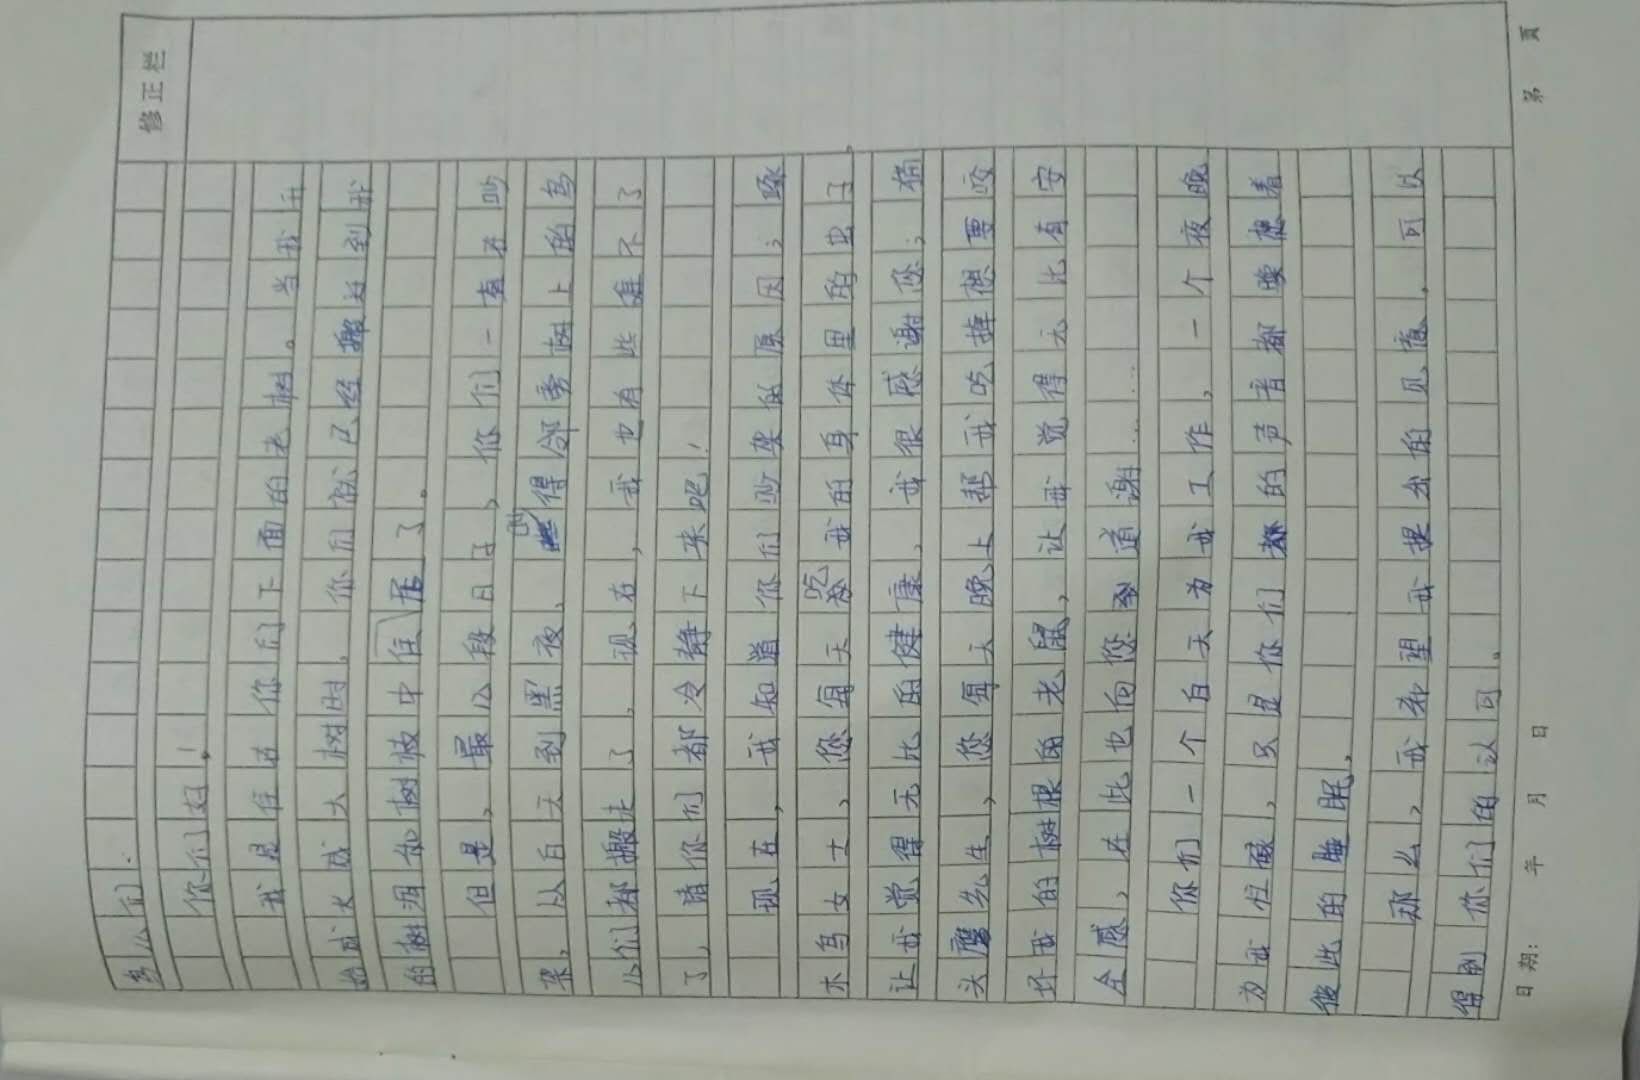 修正栏
鸟儿们:
你们好!
我是住在你们下面的老树。当我开
始成长成大树时,你们就已经搬迁到我
的树洞和树枝中住居了。
但是,最以段日子,你们一直在吵
架,从白天到黑夜,四得邻秀树上的鸟
儿们都搬走了,现在,我也有些懂不了
了,请你们都冷静下来吧!
现在,我知道你们吵架的原因;啄
木鸟女士,您每天吃我的身体里的虫子
让我觉得无比的健康,我很感谢您;猫
头鹰先生,您每天晚上帮我吃掉想要咬
坏我的树根的老鼠,让我觉得无比有安
全感,在此也向您道谢……
你们一个白天为我工作,一个夜晚
为我值班,只是你们的声音都影响着
彼此的睡眠,
那么,我希望我提出的见意,可以
得到你们的认可。
日期: 年 月 日
第 页